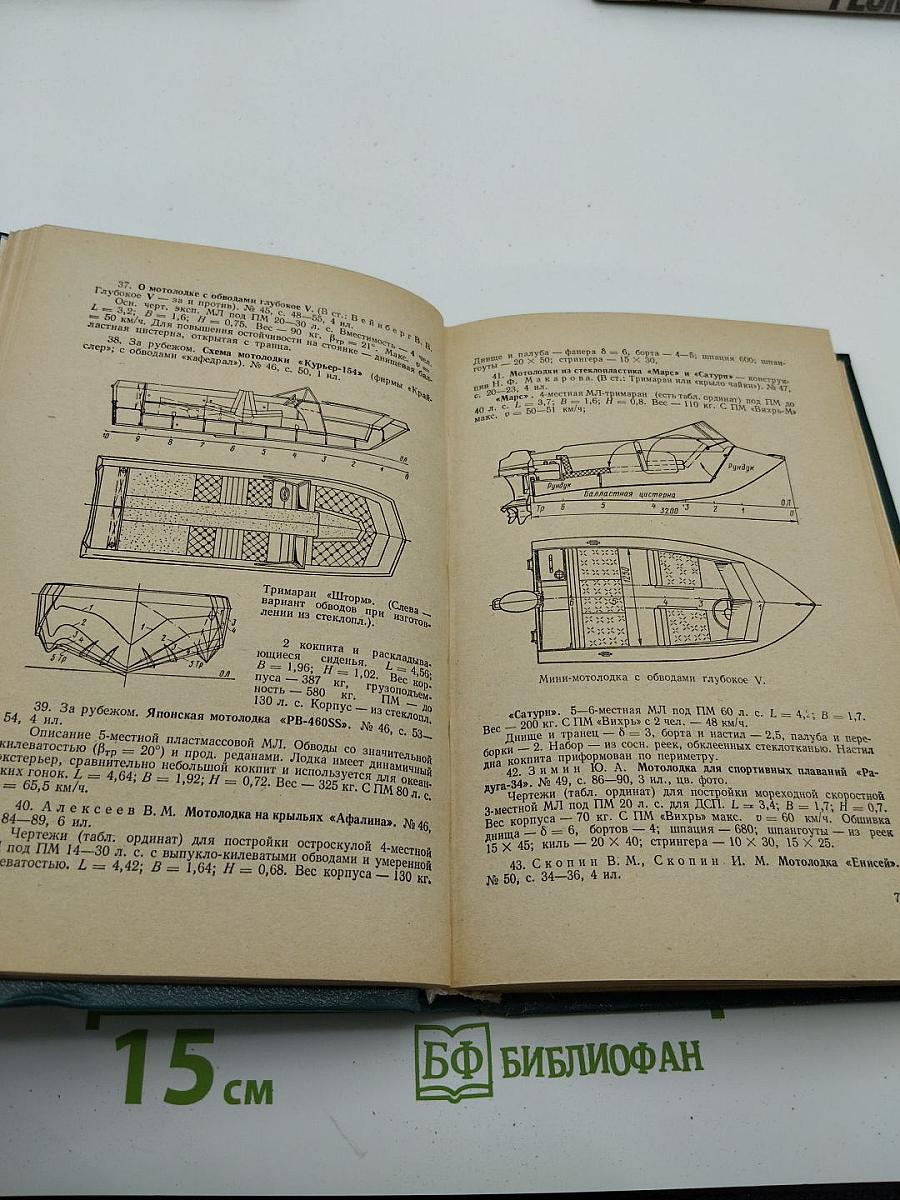 37. О мотолодке с обводами глубокое V. (В ст.: Вейнберг В. В.
Глубокое V — за и против). № 45, с. 48—55, 4 ил.
Осн. черт. эксп. МЛ под ПМ 20—30 л. с. Вместимость — 4 чел.
L = 3,2; B = 1,6; H = 0,75. Вес — 90 кг. βтр = 21°. Макс. v =
= 50 км/ч. Для повышения остойчивости на стоянке — днищевая бал-
ластная цистерна, открытая с транца.
38. За рубежом. Схема мотолодки «Курьер-154» (фирмы «Край-
слер»; с обводами «кафедрал»). № 46, с. 50, 1 ил.
10 9 8 7 6 5 4 3 2 1 ОЛ 0
Тримаран «Шторм». (Слева —
вариант обводов при изготов-
лении из стеклопл.).
1 2 3 4 5 Тр 1 2 3 4 5 Тр ОЛ
2 кокпита и раскладыва-
ющиеся сиденья. L = 4,56;
B = 1,96; H = 1,02. Вес кор-
пуса — 387 кг, грузоподъем-
ность — 580 кг. ПМ — до
130 л. с. Корпус — из стеклопл.
39. За рубежом. Японская мотолодка «PB-460SS». № 46, с. 53—
54, 4 ил.
Описание 5-местной пластмассовой МЛ. Обводы со значительной
килеватостью (βтр = 20°) и прод. реданами. Лодка имеет динамичный
экстерьер, сравнительно небольшой кокпит и используется для океан-
ких гонок. L = 4,64; B = 1,92; H = 0,72. Вес — 325 кг. С ПМ 80 л. с.
= 65,5 км/ч.
40. Алексеев В. М. Мотолодка на крыльях «Афалина». № 46,
84—89, 6 ил.
Чертежи (табл. ординат) для постройки остроскулой 4-местной
под ПМ 14—30 л. с. с выпукло-килеватыми обводами и умеренной
еватостью. L = 4,42; B = 1,64; H = 0,68. Вес корпуса — 130 кг.
Днище и палуба — фанера δ = 6, борта — 4—5; шпация 600; шпан-
гоуты — 20 × 50; стрингера — 15 × 30.
41. Мотолодки из стеклопластика «Марс» и «Сатурн» — конструк-
ции Н. Ф. Макарова. (В ст.: Тримаран или «крыло чайки»). № 47,
с. 20—23, 4 ил.
«Марс». 4-местная МЛ-тримаран (есть табл. ординат) под ПМ до
40 л. с. L = 3,7; B = 1,6; H = 0,8. Вес — 110 кг. С ПМ «Вихрь-М»
макс. v = 50—51 км/ч;
Рундук
Рундук
Балластная цистерна
ОЛ
Тр 6 5 4 3 2 1 0
3200
1250
5 4 3 2
Мини-мотолодка с обводами глубокое V.
«Сатурн». 5—6-местная МЛ под ПМ 60 л. с. B = 1,7.
Вес — 200 кг. С ПМ «Вихрь» с 2 чел. — 48 км/ч.
Днищe и транец — δ = 3, борта и настил — 2,5, палуба и пере-
борки — 2. Набор — из сосн. реек, обклеенных стеклотканью. Настил
дна кокпита приформован по периметру.
42. Зимин Ю. А. Мотолодка для спортивных плаваний «Ра-
дуга-34». № 49, с. 86—90, 3 ил., цв. фото.
Чертежи (табл. ординат) для постройки мореходной скоростной
3-местной МЛ под ПМ 20 л. с. для ДСП. L = 3,4; B = 1,7; H = 0,7.
Вес корпуса — 70 кг. С ПМ «Вихрь» макс. v = 60 км/ч. Обшивка
днища — δ = 6, бортов — 4; шпация — 680; шпангоуты — из реек
15 × 45; киль — 20 × 40; стрингера — 10 × 30, 15 × 25.
43. Скопин В. М., Скопин И. М. Мотолодка «Енисей».
№ 50, с. 34—36, 4 ил.
7
15 см
БФ БИБЛИОФАН